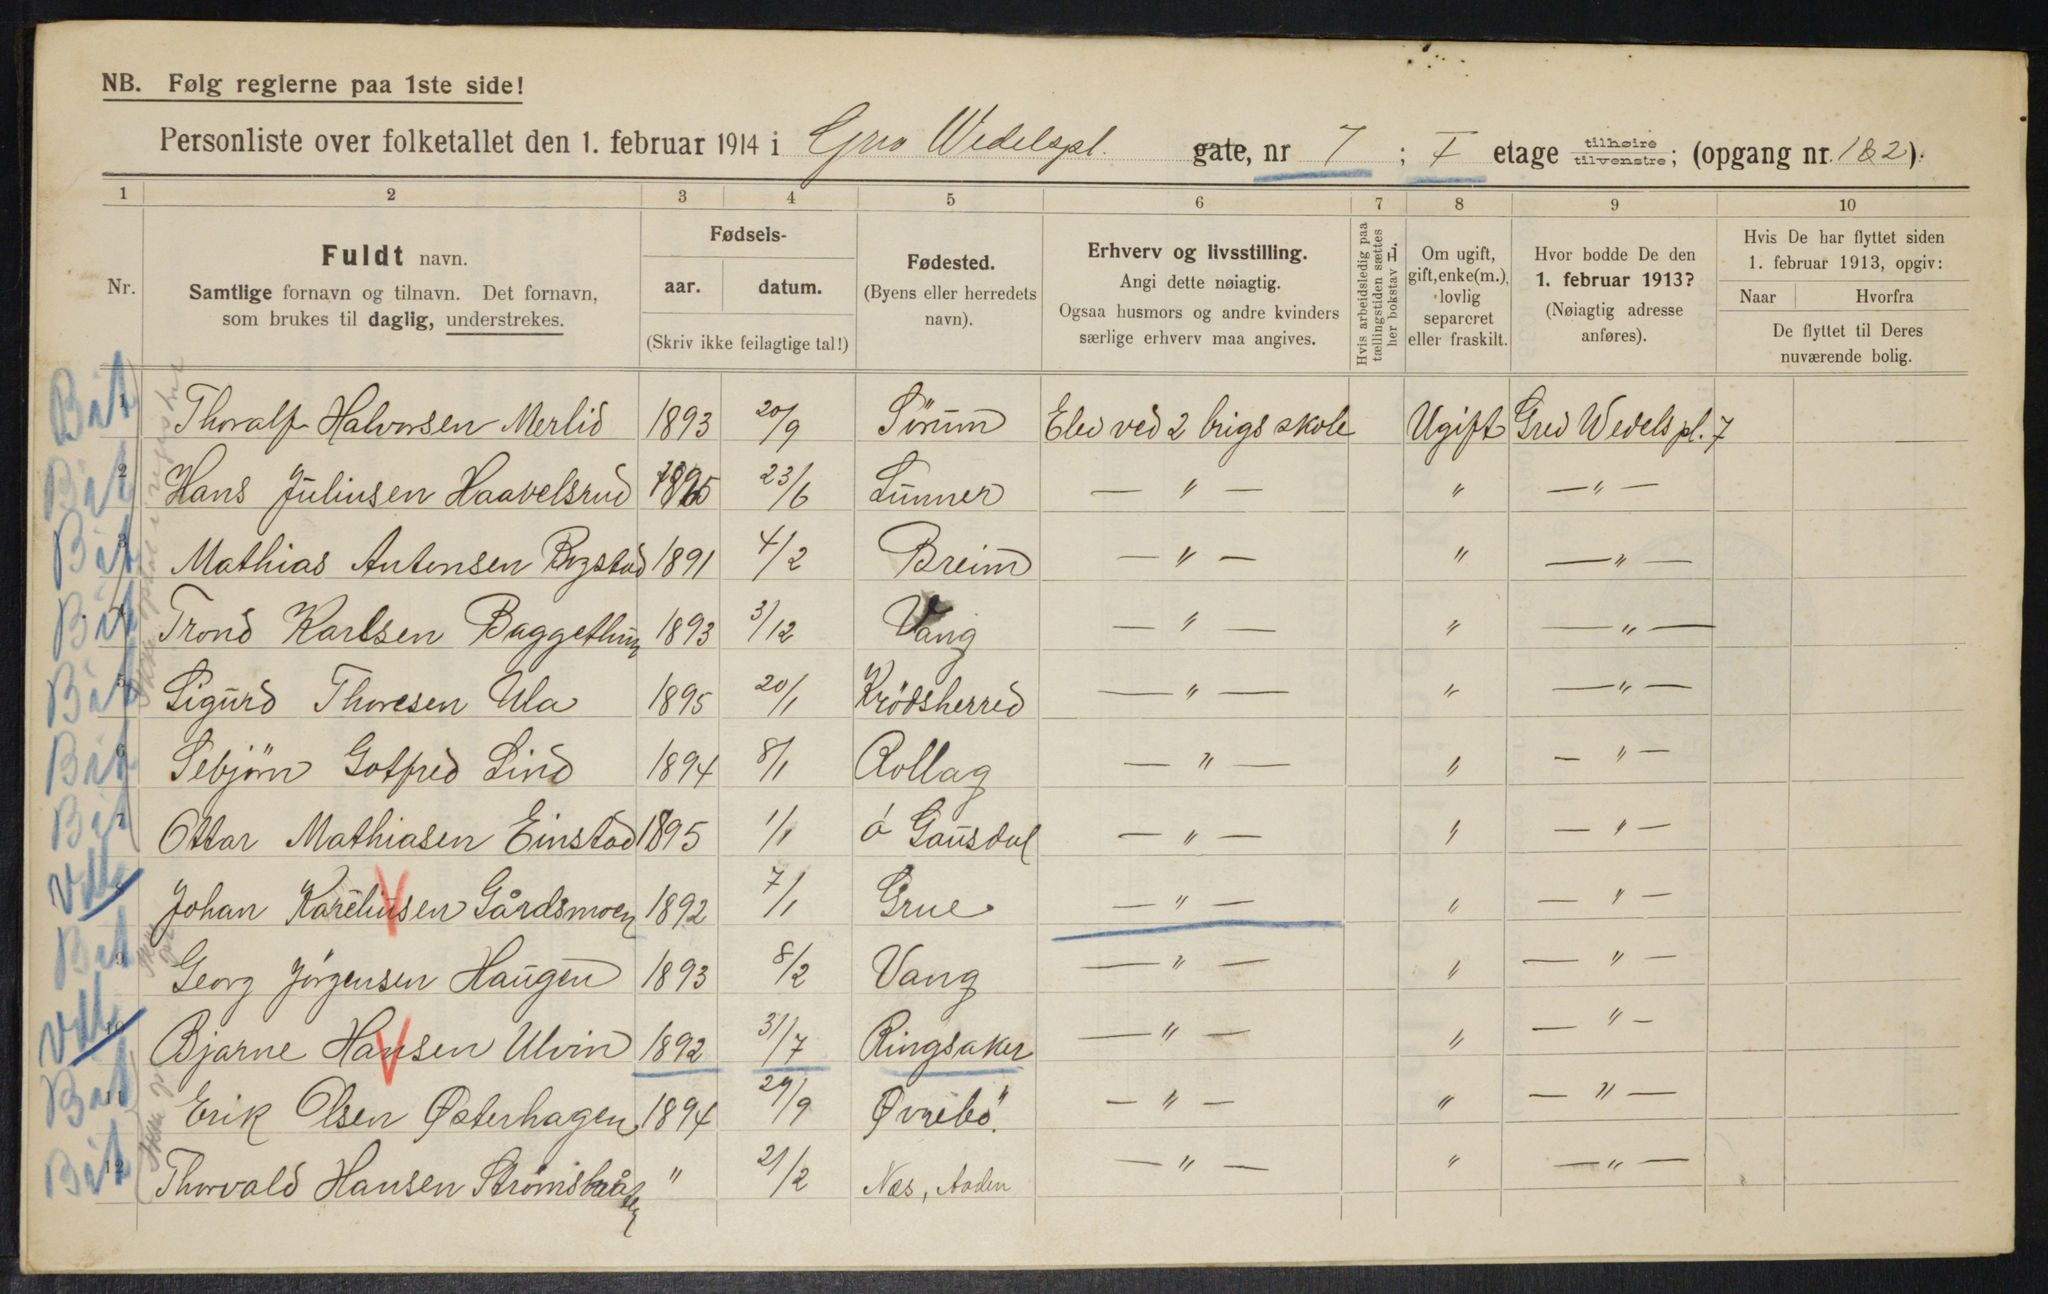 NB. Følg reglerne paa 1ste side!
Personliste over folketallet den 1. februar 1914 i Grev Wedelspl. gate, nr 7 ; I etage tilhøire tilvenstre ; (opgang nr. 1 & 2).
1 2 3 4 5 6 7 8 9 10
Nr.
Fuldt navn.
Samtlige fornavn og tilnavn. Det fornavn,
som brukes til daglig, understrekes.
Fødsels-
aar. datum.
(Skriv ikke feilagtige tal!)
Fødested.
(Byens eller herredets
navn).
Erhverv og livsstilling.
Angi dette nøiagtig.
Ogsaa husmors og andre kvinders
særlige erhverv maa angives.
Hvis arbeidsledig paa
tællingstiden sættes
her bokstav L.
Om ugift,
gift, enke(m.),
lovlig
separeret
eller fraskilt.
Hvor bodde De den
1. februar 1913?
(Nøiagtig adresse
anføres).
Hvis De har flyttet siden
1. februar 1913, opgiv:
Naar Hvorfra
De flyttet til Deres
nuværende bolig.
1 Thoralf Halvorsen Merlid 1893 20/9 Sörum Elev ved 2 brigs skole Ugift Grev Wedels pl. 7
2 Hans Juliusen Haavelsrud 1895 23/6 Lunner — " — " — " —
3 Mathias Antonsen Bogstad 1891 4/2 Breim — " — " — " —
4 Trond Karlsen Baggethun 1893 3/12 Vang — " — " — " —
5 Sigurd Thoresen Ula 1895 20/1 Krödsherred — " — " — " —
6 Sebjörn Gotfred Lind 1894 8/1 Rollag — " — " — " —
7 Ottar Mathiasen Einstad 1895 1/1 ö Gausdal — " — " — " —
Johan Kareliusen Gårdsmoen 1892 7/1 Grue — " — " — " —
9 Georg Jörgensen Haugen 1893 8/2 Vang — " — " — " —
10 Bjarne Hansen Ulvin 1892 31/7 Ringsaker — " — " — " —
11 Erik Olsen Østerhagen 1894 29/9 Øvrebö. — " — " — " —
12 Thorvald Hansen " 21/2 Næs, — " — " — " —